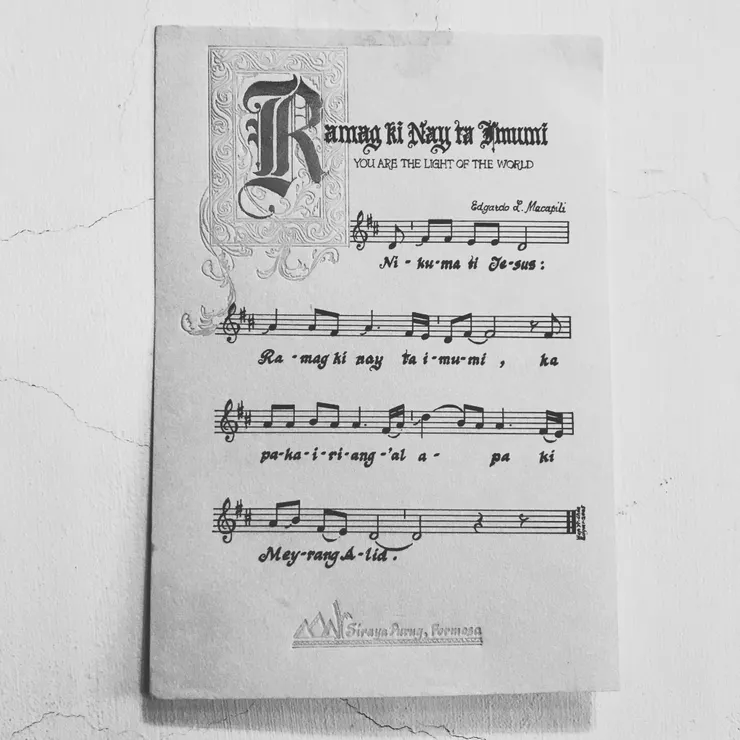 Ramag ki Nay ta Imumi
YOU ARE THE LIGHT OF THE WORLD
Edgardo L. Macapili
Ni-ku-ma ti Je-sus:
Ra-mag ki nay ta i-mu-mi, ka
pa-ka-i-ri-ang-'al a-pa ki
Mey-rang A-lid.
Siraya Purug, Formosa